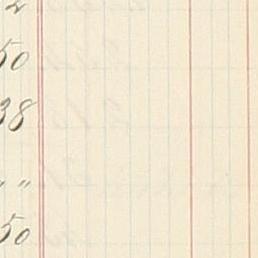 2
50
38
" "
50